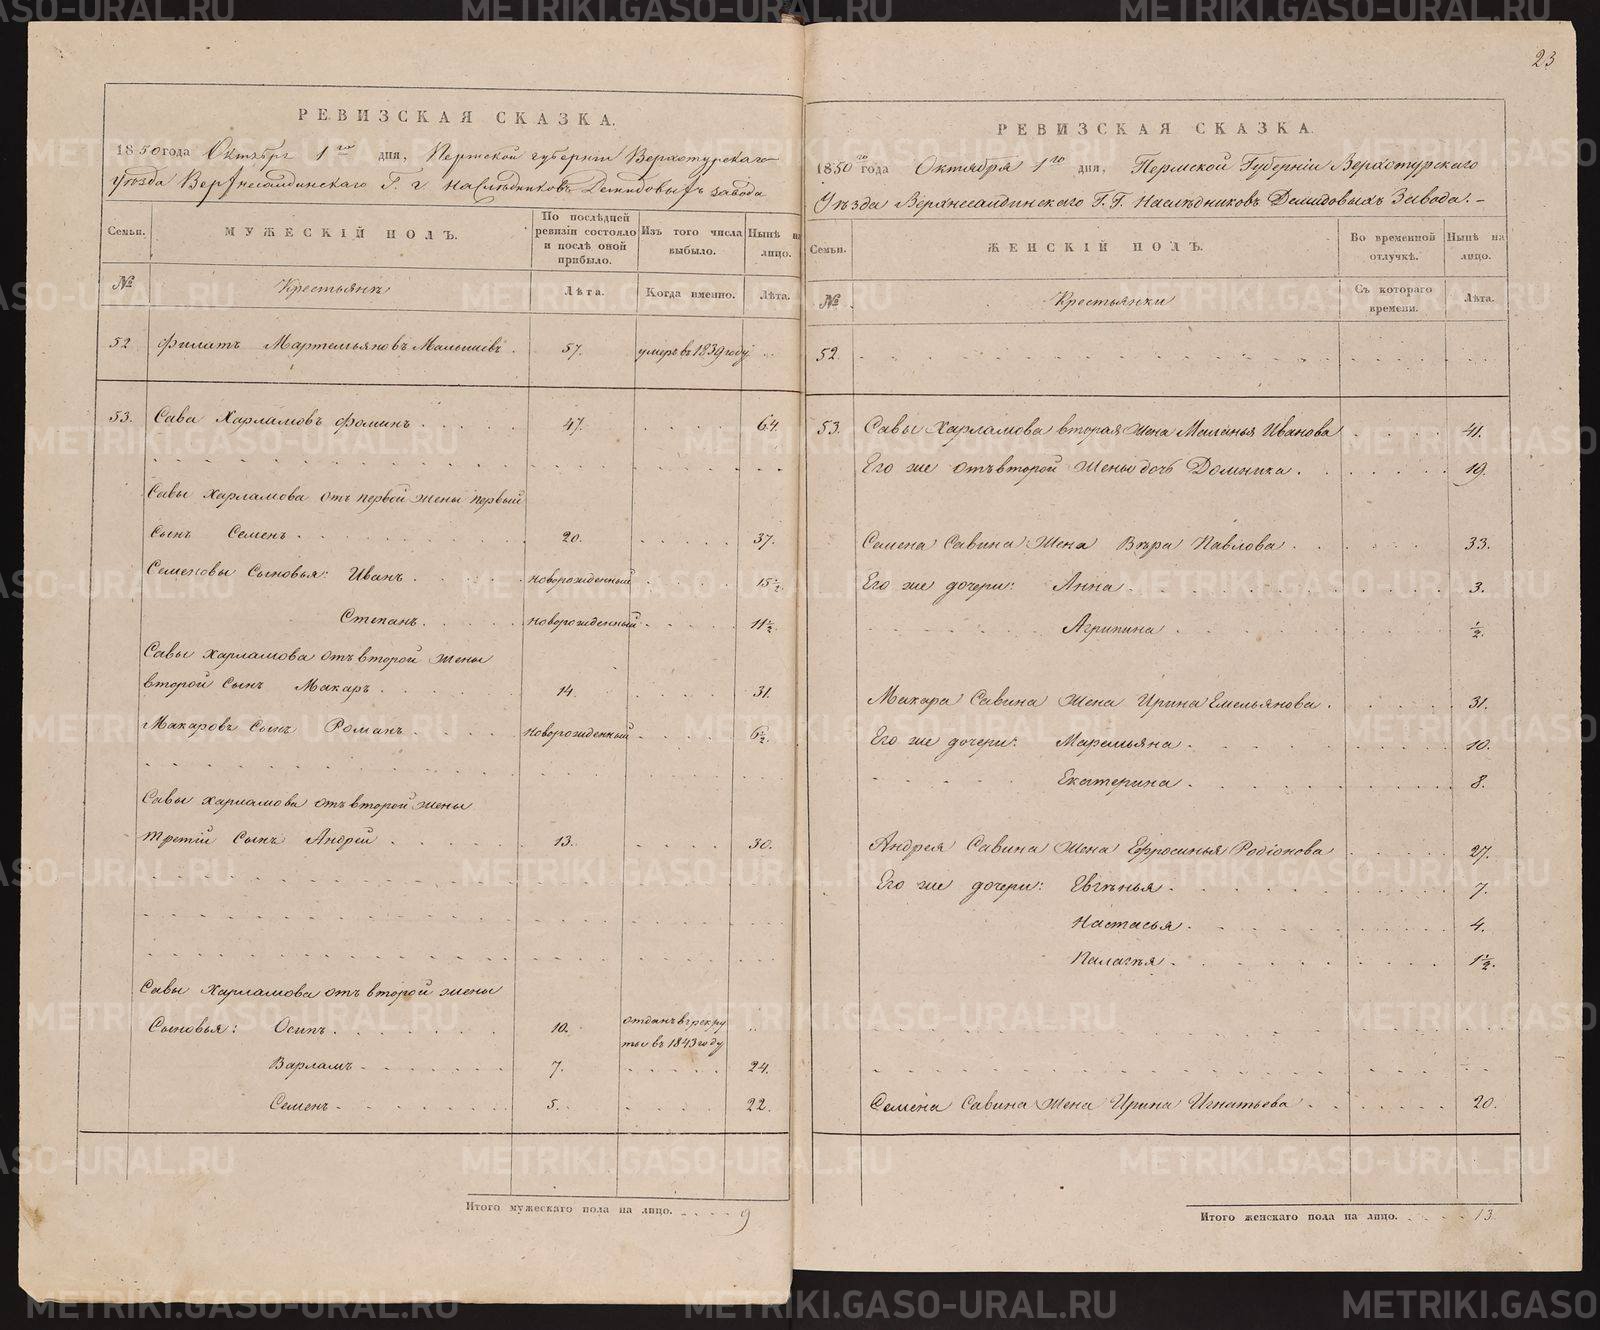 23
РЕВИЗСКАЯ СКАЗКА.
1850 года Октября 1го дня, Пермской губернiи Верхотурскаго
Уѣзда Верхнесалдинскаго Г. г. наслѣдниковъ Демидовыхъ завода
Семьи.
МУЖЕСКIЙ ПОЛЪ.
По послѣдней ревизiи состояло и послѣ оной прибыло.
Изъ того числа выбыло.
Нынѣ на лицо.
№
Крестьянъ
Лѣта.
Когда именно.
Лѣта.
52 Филатъ Мартемьяновъ Малышевъ. 57. умеръ въ 1839 году
53. Сава Харламовъ Фоминъ 47. 64.
Савы Харламова отъ первой жены первый
сынъ Семенъ 20. 37.
Семеновы Сыновья: Иванъ новорожденный 15½
Степанъ новорожденный 11½
Савы Харламова отъ второй жены
второй сынъ Макаръ 14. 31.
Макаровъ сынъ Романъ новорожденный 6½.
Савы Харламова отъ второй жены
третiй сынъ Андрей 13. 30.
Савы Харламова отъ второй жены
Сыновья: Осипъ 10. отданъ в рекру
ты въ 1843 году
Варламъ 7. 24.
Семенъ 5. 22.
Итого мужескаго пола на лицо. 9
РЕВИЗСКАЯ СКАЗКА.
1850го года Октября 1го дня, Пермской Губернiи Верхотурскаго
Уѣзда Верхнесалдинскаго Г. Г. Наслѣдниковъ Демидовыхъ Завода. –
Семьи.
ЖЕНСКIЙ ПОЛЪ.
Во временной отлучкѣ.
Нынѣ на лицо.
№
Крестьянки
Съ котораго времени.
Лѣта.
52.
53. Савы Харламова вторая жена Маланья Иванова 41.
Его же отъ второй жены дочь Домника. 19.
Семена Савина жена Вѣра Павлова. 33.
Его же дочери: Анна 3.
Агрипина ½.
Макара Савина жена Ирина Емельянова. 31.
Его же дочери: Маремьяна 10.
Екатерина 8.
Андрея Савина жена Ефросинья Родiонова 27.
Его же дочери: Евгѣнья 7.
Настасья 4.
Палагѣя 1½.
Семена Савина жена Ирина Игнатьева 20.
Итого женскаго пола на лицо. 13.
METRIKI.GASO-URAL.RU